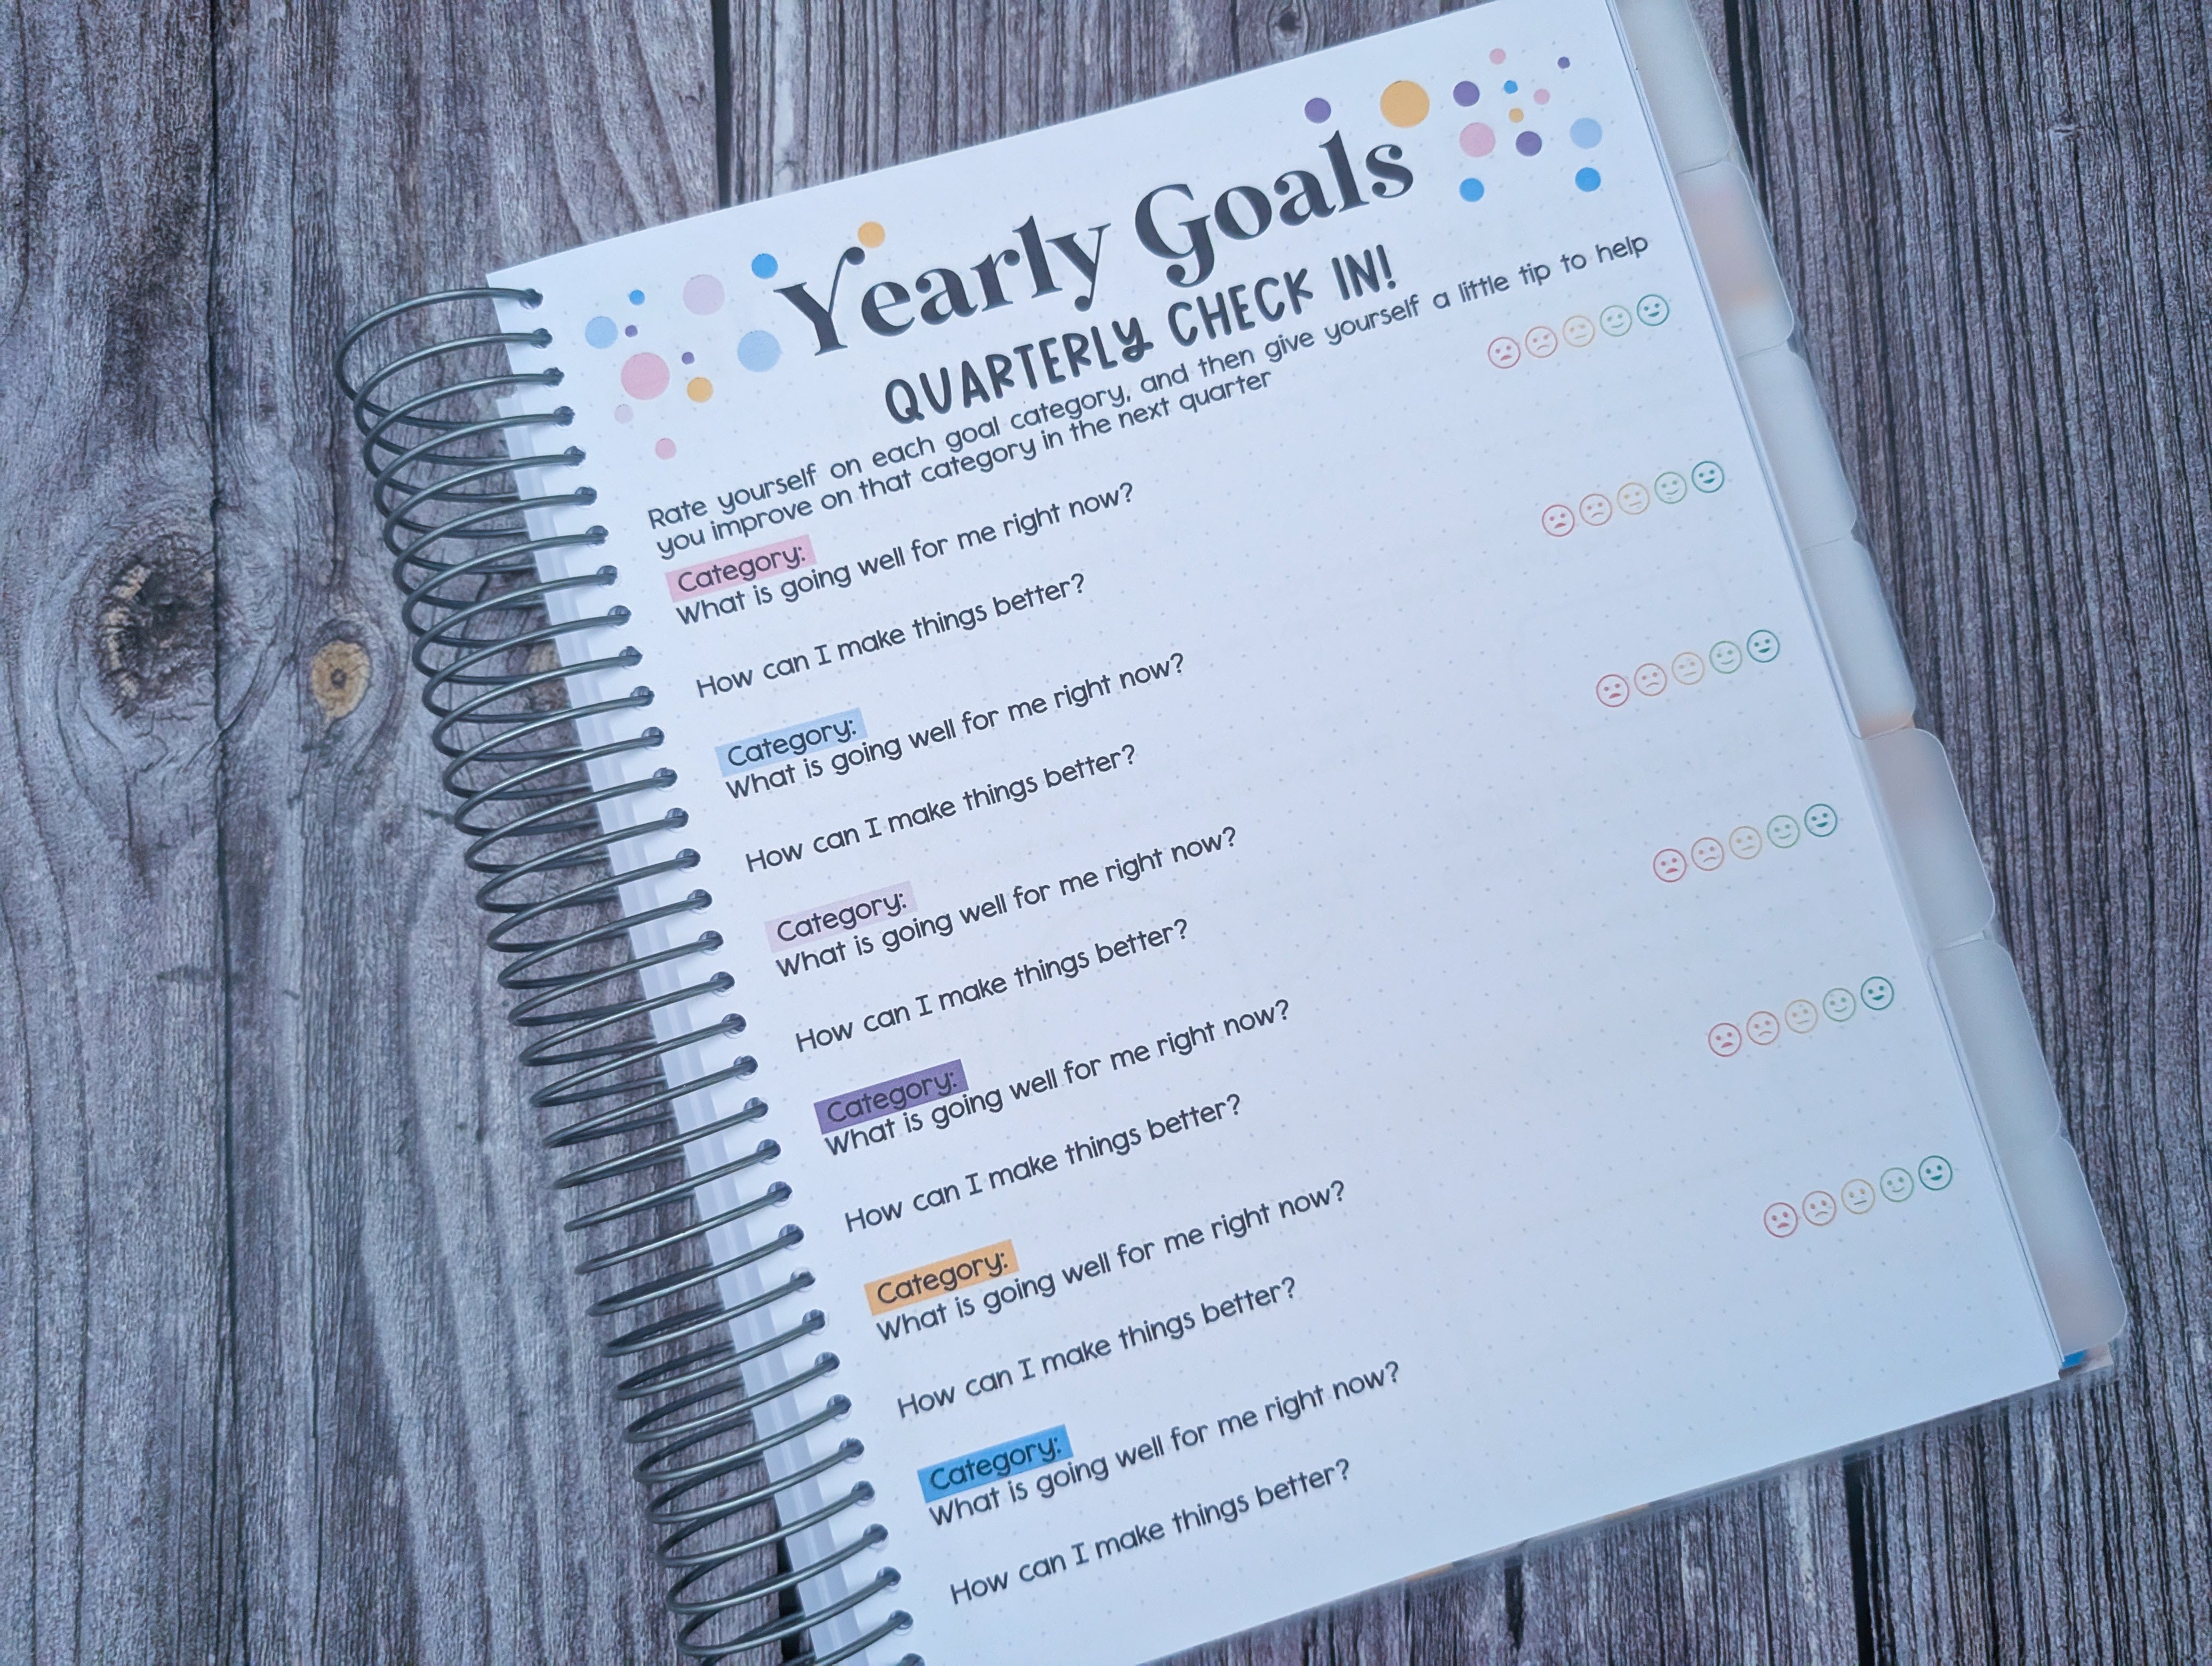 Yearly Goals
QUARTERLY CHECK IN!
Rate yourself on each goal category, and then give yourself a little tip to help
you improve on that category in the next quarter
Category:
What is going well for me right now?
How can I make things better?
Category:
What is going well for me right now?
How can I make things better?
Category:
What is going well for me right now?
How can I make things better?
Category:
What is going well for me right now?
How can I make things better?
Category:
What is going well for me right now?
How can I make things better?
Category:
What is going well for me right now?
How can I make things better?